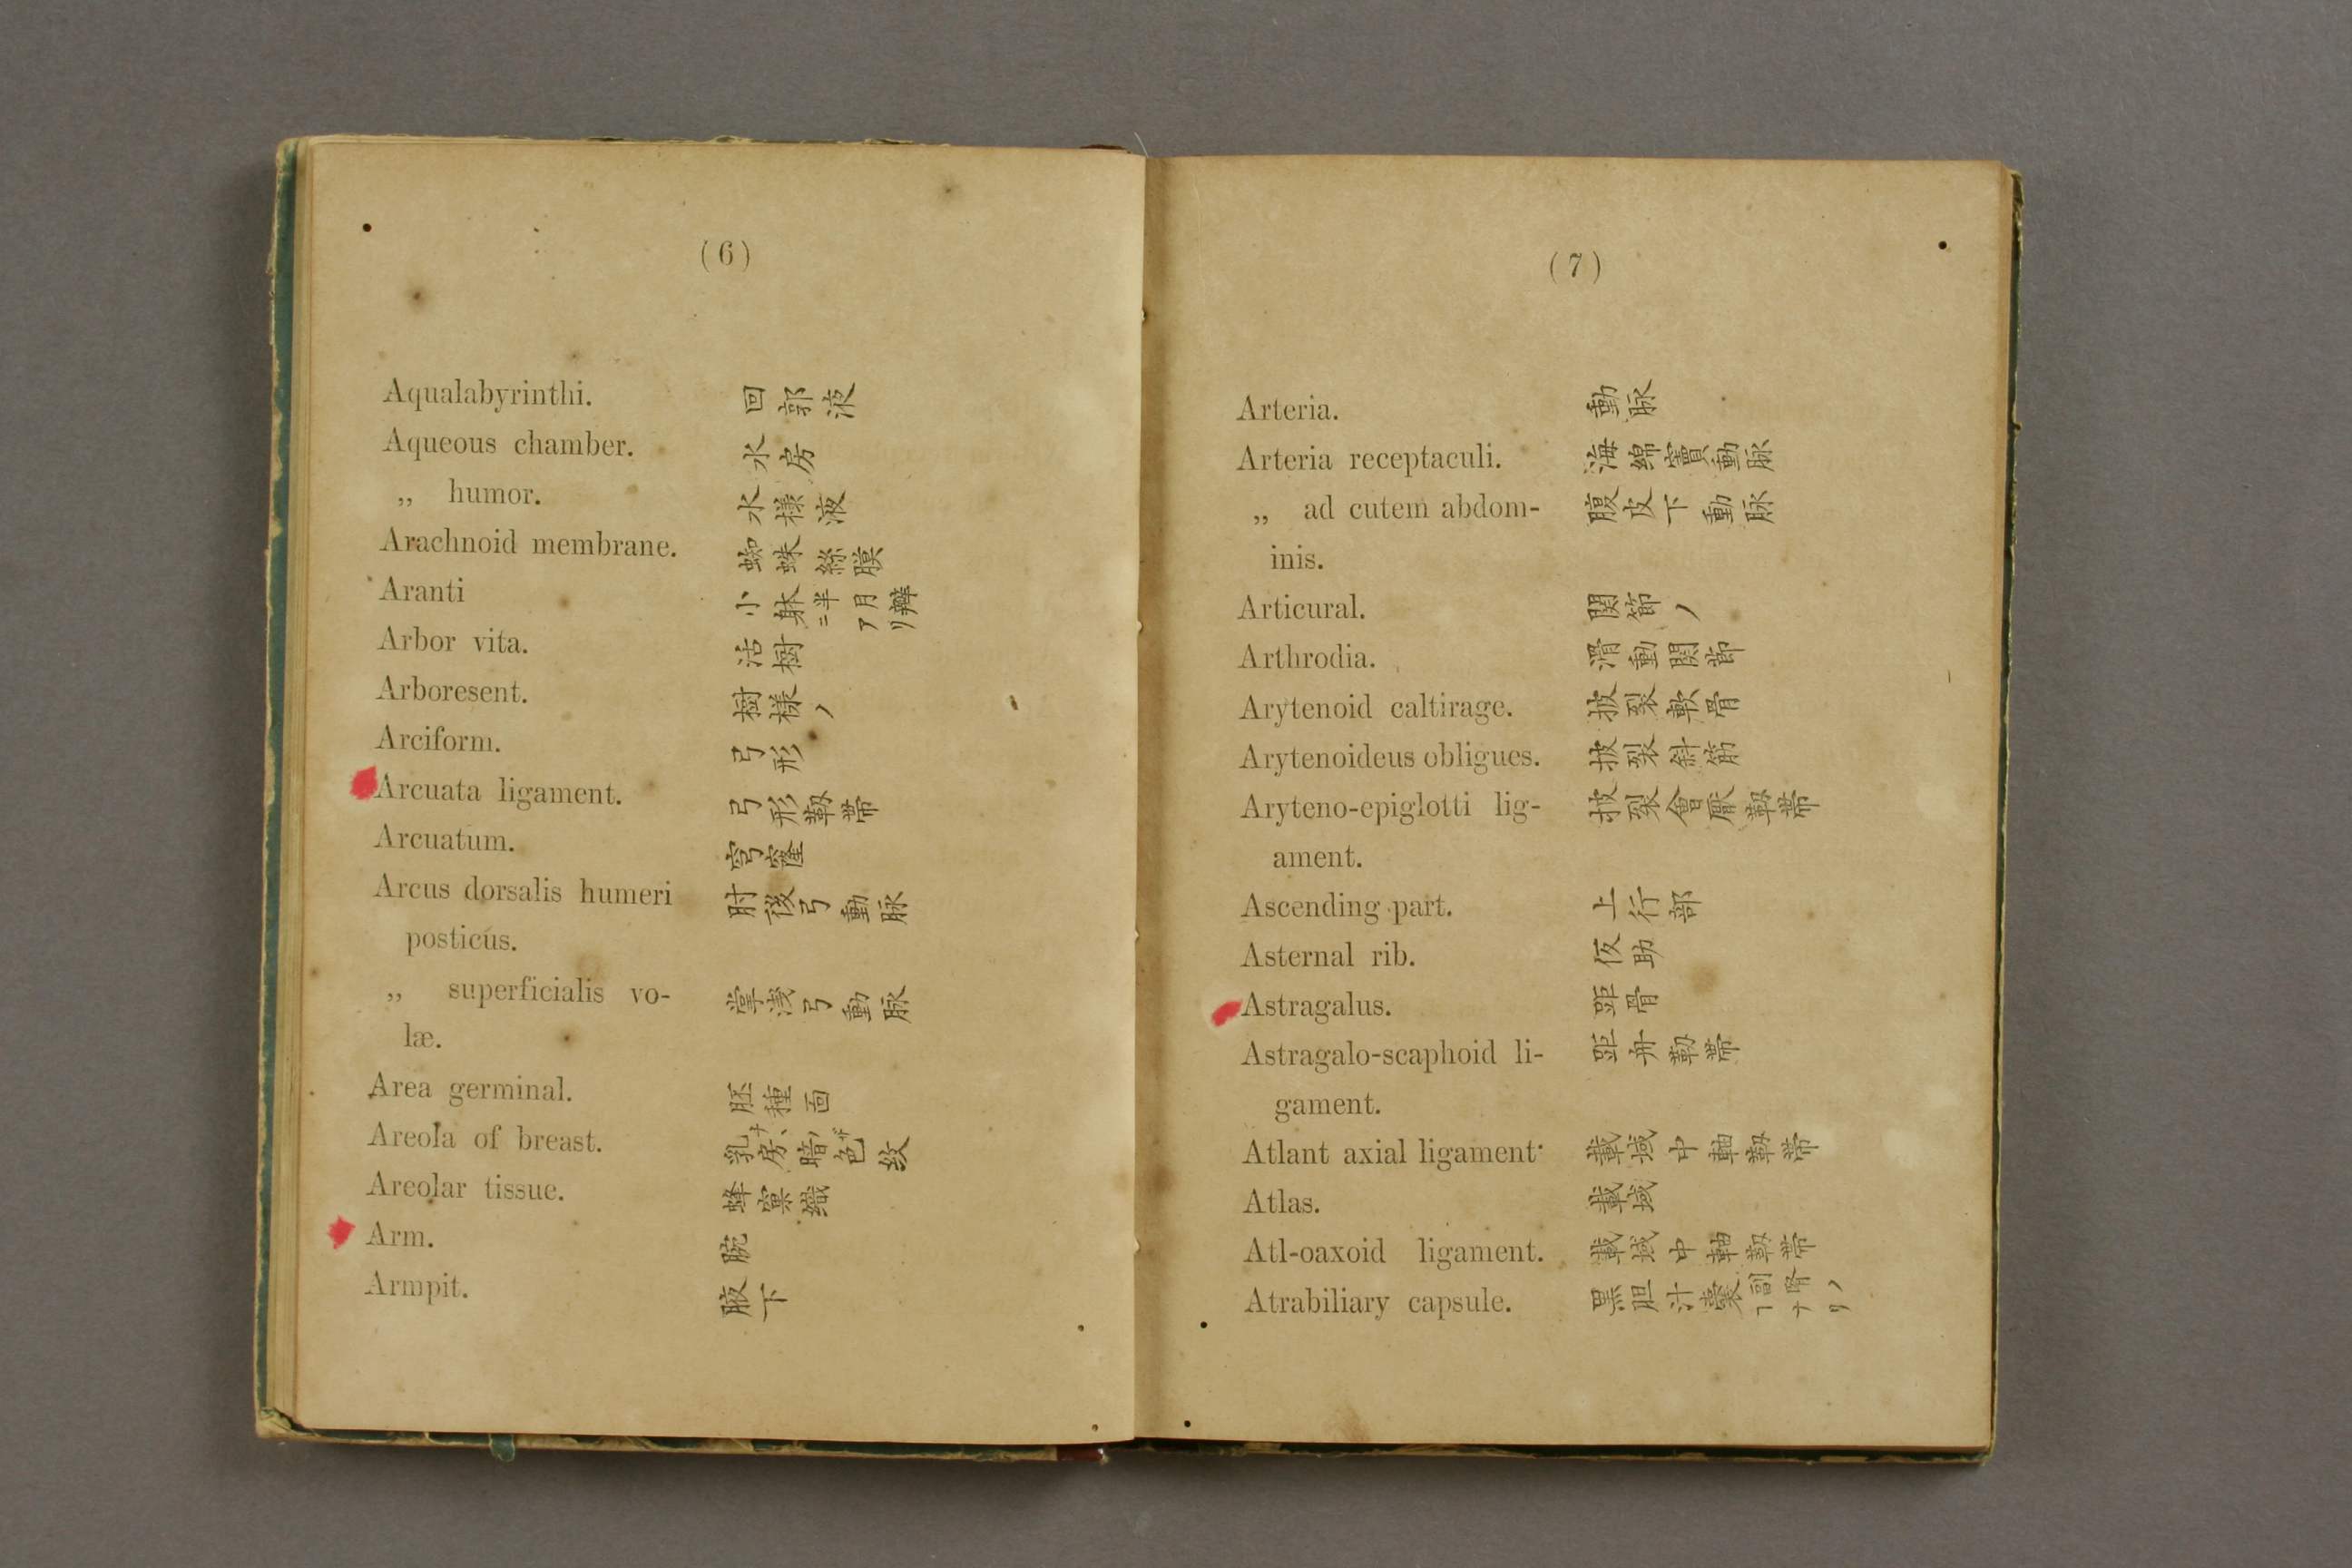 (6)
Aqualabyrinthi. 回郭液
Aqueous chamber. 水房
„ humor. 水樣液
Arachnoid membrane. 蜘蛛絲膜
Aranti 小躰半月瓣ニアリ
Arbor vita. 活樹
Arboresent. 樹樣ノ
Arciform. 弓形
Arcuata ligament. 弓形靱帯
Arcuatum. 穹窿
Arcus dorsalis humeri 肘後弓動脉
posticus.
„ superficialis vo- 掌浅弓動脉
læ.
Area germinal. 胚種
Areola of breast. 乳房暗色紋
Areolar tissue. 蜂窠織
Arm. 腕
Armpit. 腋下
(7)
Arteria. 動脉
Arteria receptaculi. 海綿竇動脉
„ ad cutem abdom- 腹皮下動脉
inis.
Articural. 関節ノ
Arthrodia. 滑動関節
Arytenoid caltirage. 披裂軟骨
Arytenoideus obligues. 披裂斜筋
Aryteno-epiglotti lig- 披裂會厭靱帯
ament.
Ascending part. 上行部
Asternal rib. 仮助
Astragalus. 距骨
Astragalo-scaphoid li- 距舟靱帯
gament.
Atlant axial ligament· 載域中軸靱帯
Atlas. 載域
Atl-oaxoid ligament. 載域中軸靱帯
Atrabiliary capsule. 黒胆汁嚢副腎ノヿナリ